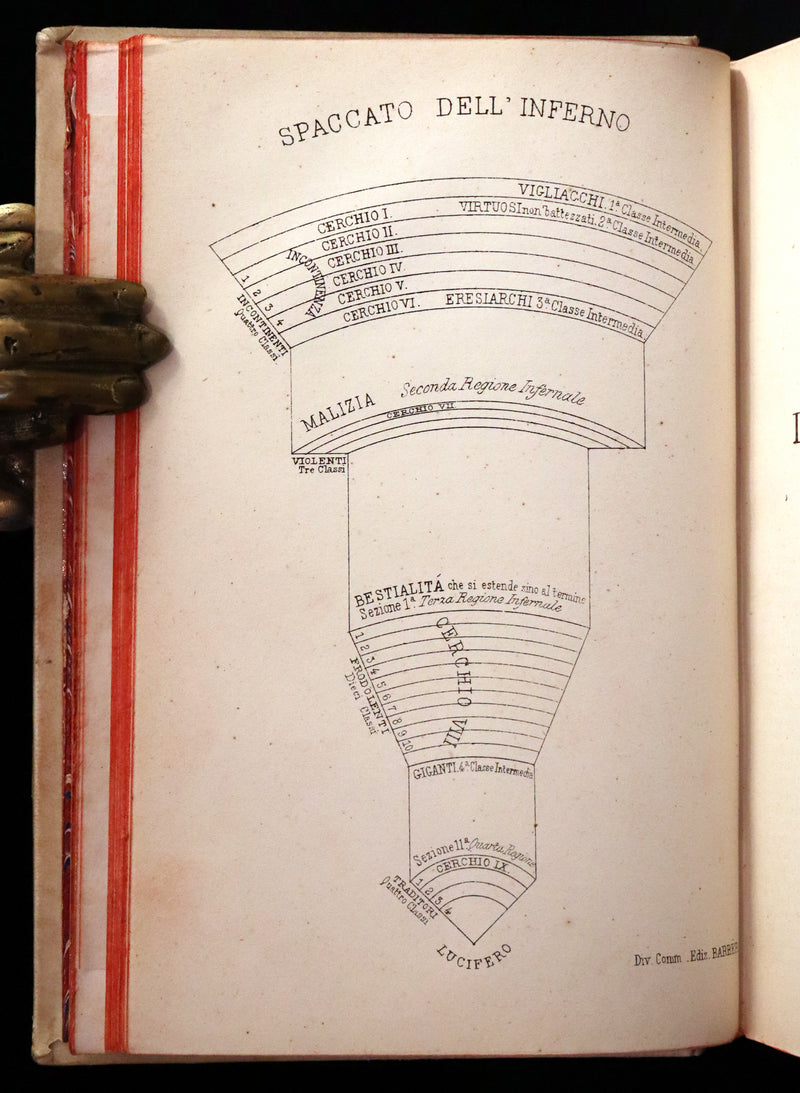 SPACCATO DELL' INFERNO
VIGLIACCHI. 1ª Classe Intermedia.
CERCHIO I.
VIRTUOSI non battezzati. 2ª Classe Intermedia
CERCHIO II.
CERCHIO III.
CERCHIO IV.
CERCHIO V.
CERCHIO VI.
ERESIARCHI 3ª Classe Intermedia
INCONTINENZA
1 2 3 4
INCONTINENTI
Quattro Classi
MALIZIA Seconda Regione Infernale
CERCHIO VII
VIOLENTI
Tre Classi
BESTIALITÁ che si estende sino al termine
Sezione 1ª. Terza Regione Infernale
1 2 3 4 5 6 7 8 9 10
CERCHIO VIII
FRODOLENTI
Dieci Classi
GIGANTI. 4ª Classe Intermedia
Sezione 11ª. Quarta Regione
CERCHIO IX.
1 2 3 4
TRADITORI
Quattro Classi
LUCIFERO
Div. Comm. Ediz.